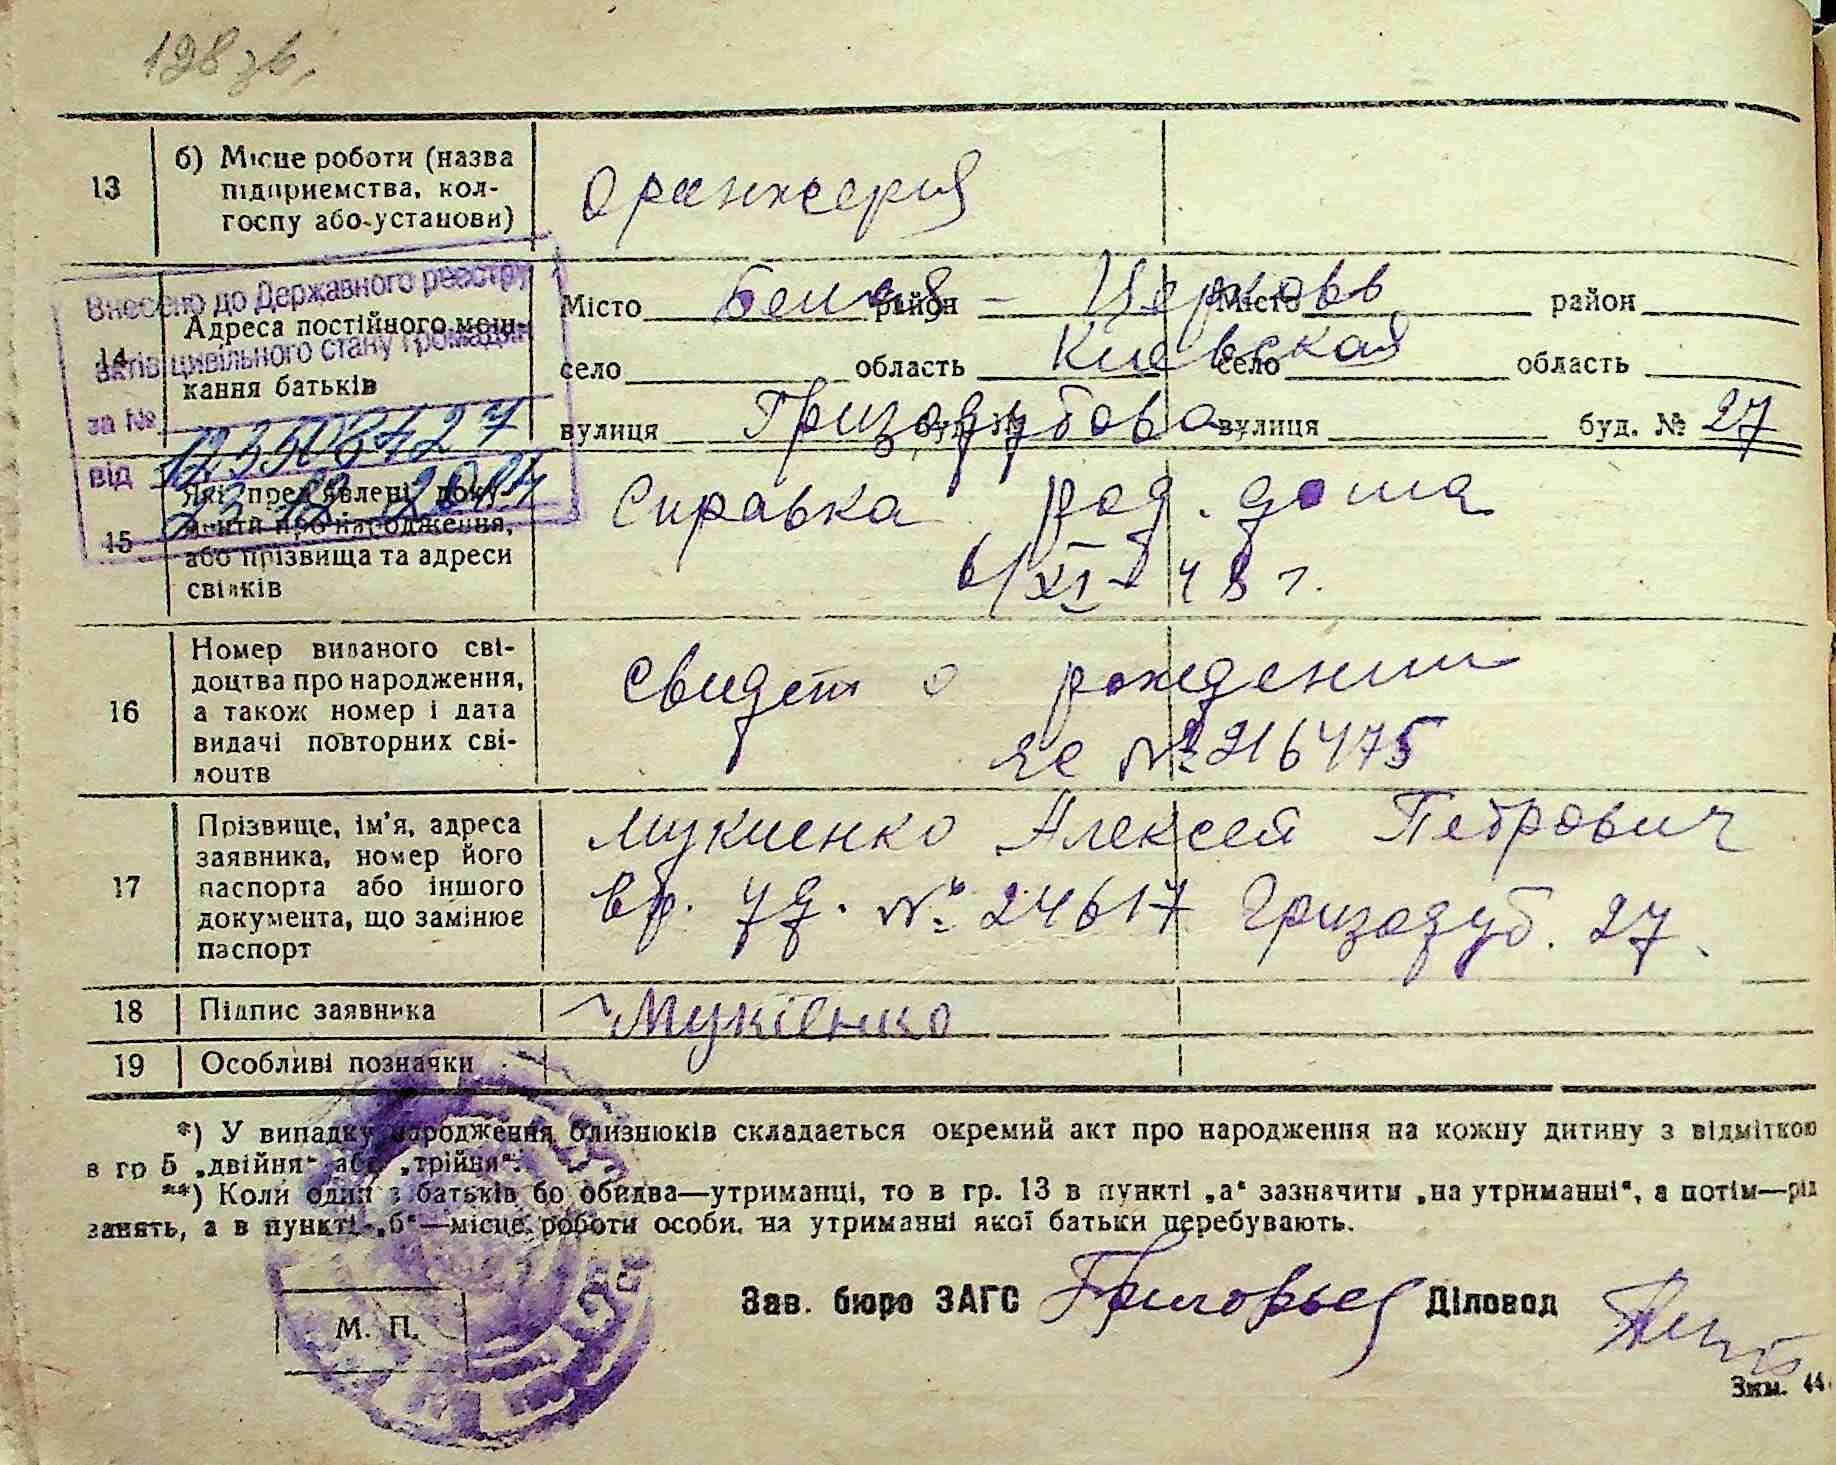 128 зв.
13
б) Місце роботи (назва
підприємства, кол-
госпу або установи)
Оранжерия
Внесено до Державного реєстру
актів цивільного стану громадян
за № 123508427
від
14
Адреса постійного меш-
кання батьків
Місто Белая район - Церковь Місто район
село область Киевская село область
вулиця Гризодубова вулиця буд. № 27
15
які пред'явлені доку-
менти про народження,
або прізвища та адреси
свідків
Справка род. дома
6/XI-48 г.
16
Номер виданого сві-
доцтва про народження,
а також номер і дата
видачі повторних сві-
доцтв
Свидет о рождении
№ 216475
17
Прізвище, ім'я, адреса
заявника, номер його
паспорта або іншого
документа, що замінює
паспорт
Мукиенко Алексей Петрович
вр. уд. № 24617 Гризодуб. 27.
18
Підпис заявника
Мукіенко
19
Особливі позначки
*) У випадку народження близнюків складається окремий акт про народження на кожну дитину з відміткою
в гр 5 „двійня“ або „трійня“.
**) Коли один з батьків бо обидва—утриманці, то в гр. 13 в пункті „а“ зазначити „на утриманні“, а потім—рід
занять, а в пункті „б“—місце роботи особи, на утриманні якої батьки перебувають.
Зав. бюро ЗАГС Григорьев Діловод
М. П.
Зам. 44